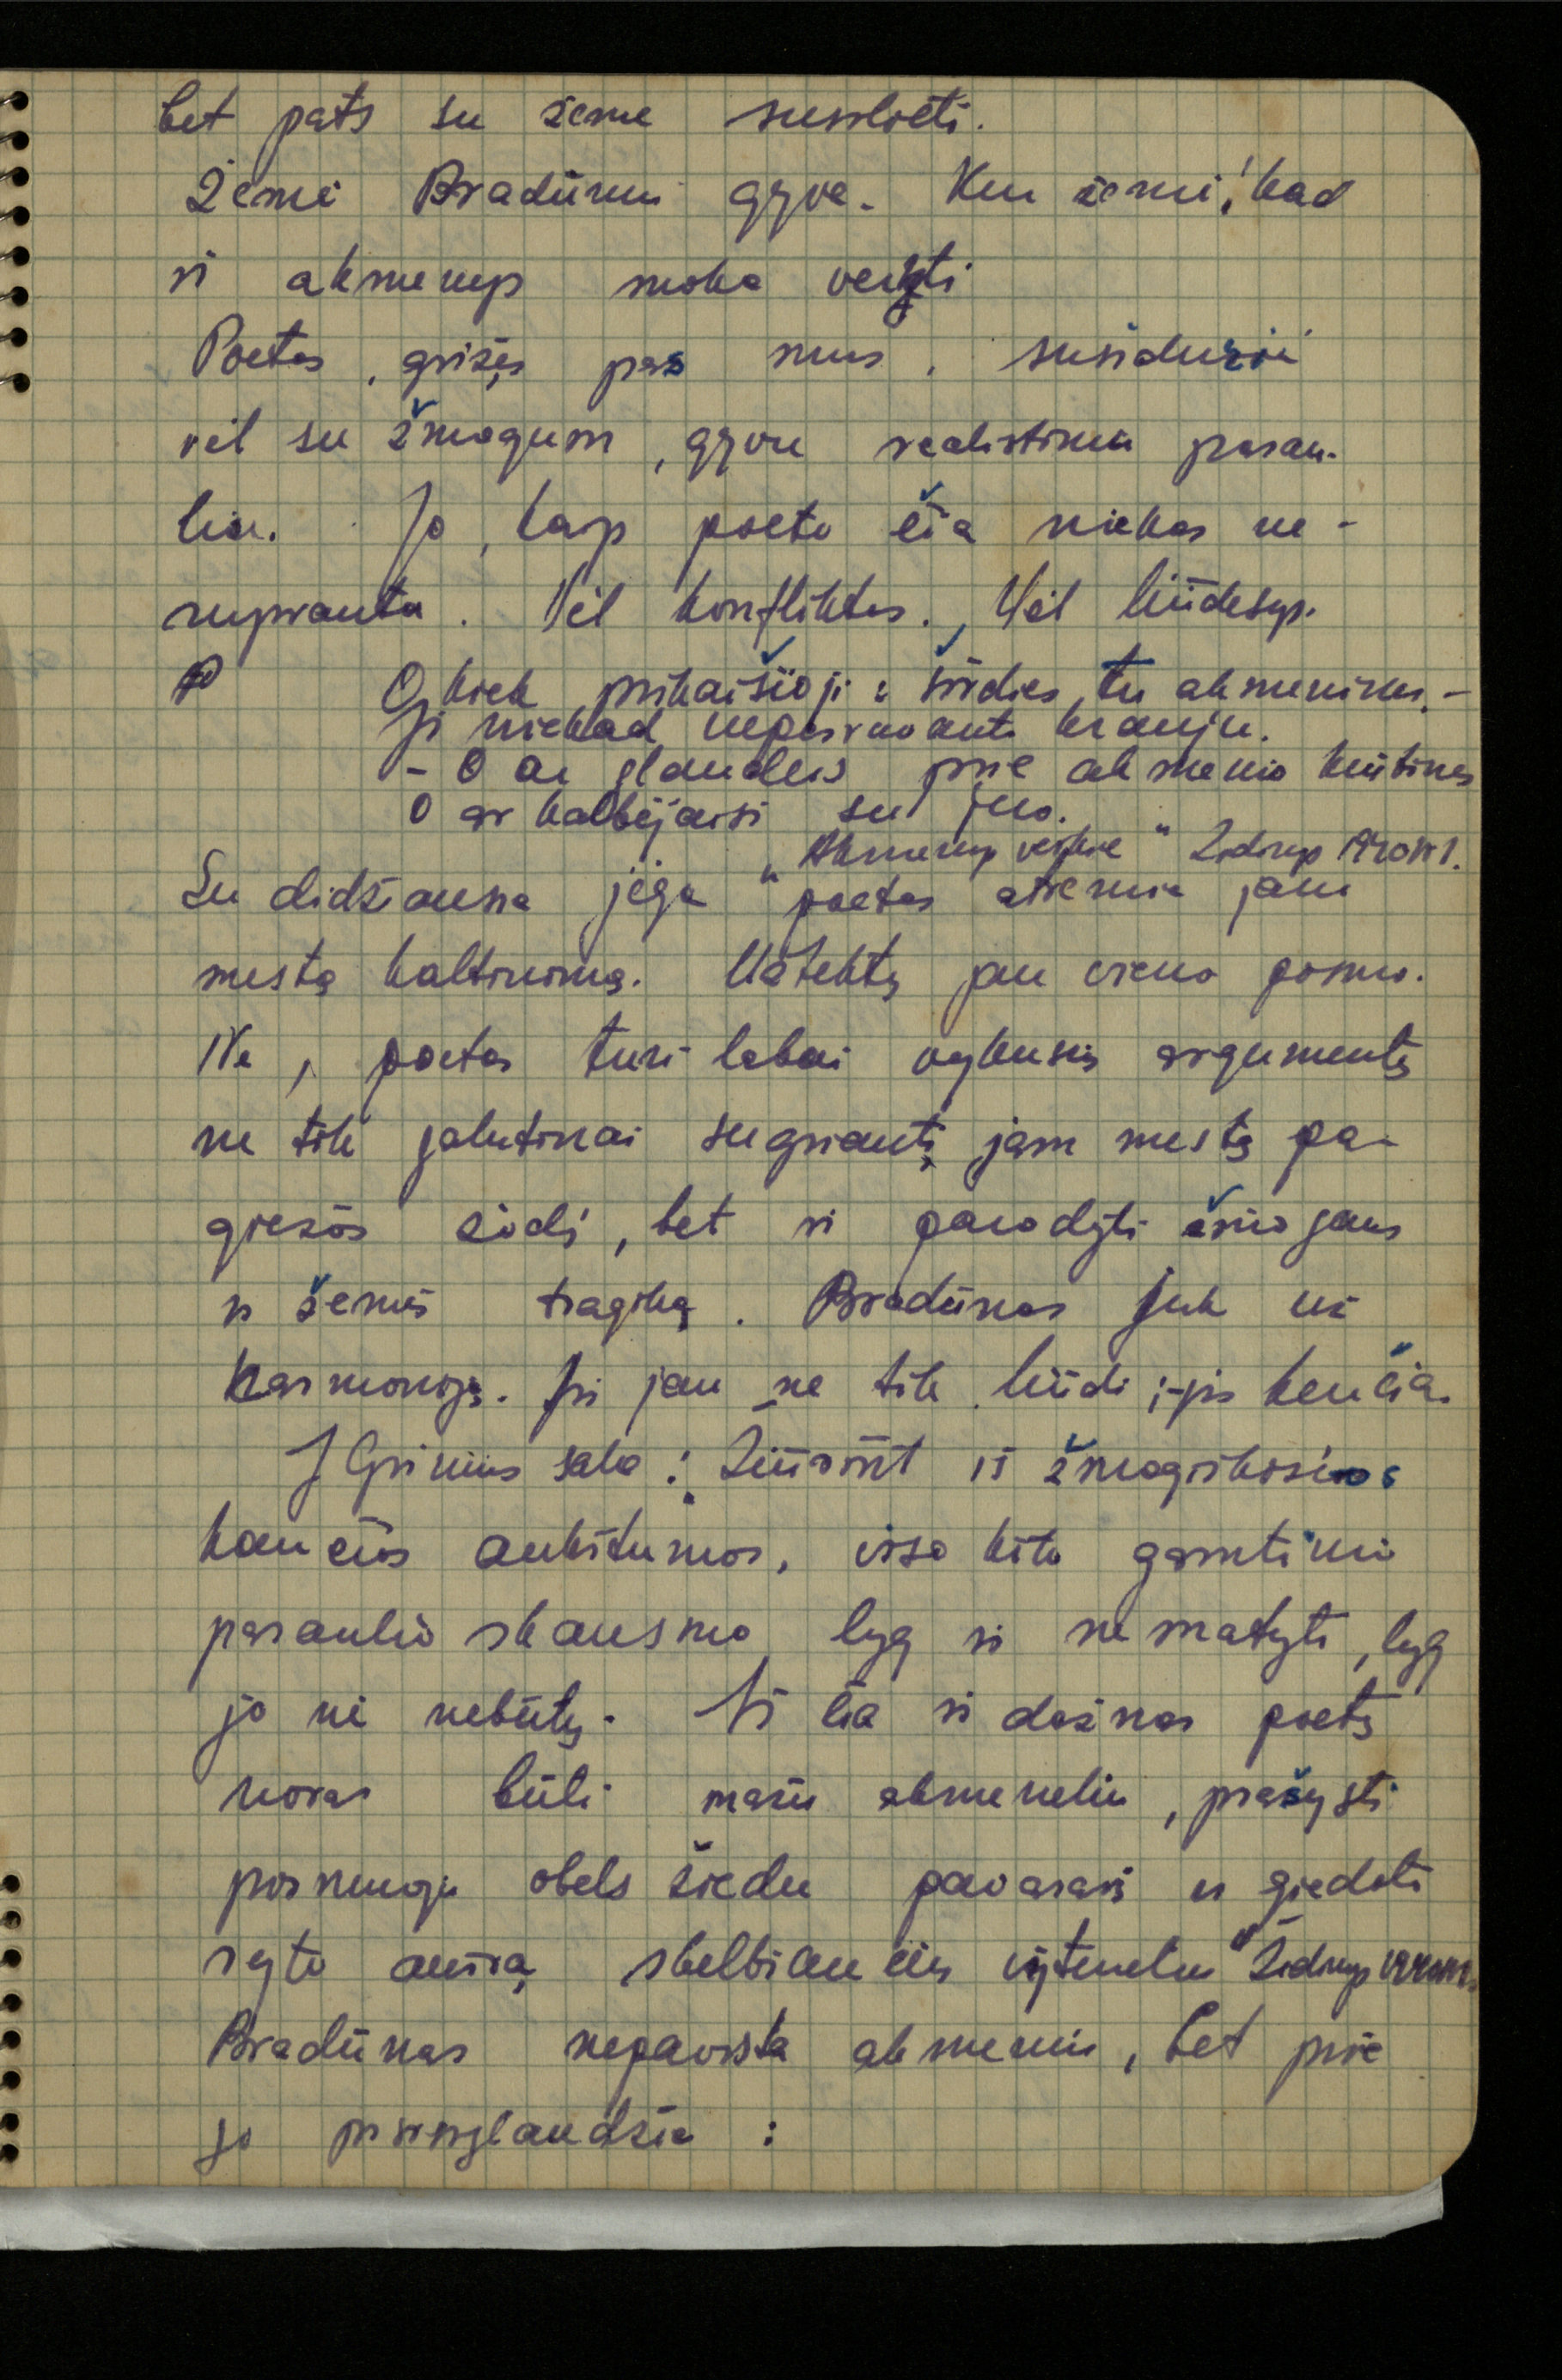 bet pats su žeme susilieti.
Žemė Bradūnui gyva. Ken žemė, kad
ir akmenys moka verkti
Poetas, grįžęs pas mus, susidūrė
vėl su žmogum, gyvu realistiniu pasau-
liu. Jo, kaip poeto čia niekas ne-
supranta. Vėl konfliktas. Vėl liūdesys.
O, kiek prikaišioji: širdies tu akmeninės, –
Ji niekad nepasruvanti krauju.
– O ar glaudeis prie akmenio krūtinės
O ar kalbėjaisi su juo.
„Akmenys verkia" Židinys
Su didžiausia jėga poetas atremia jam
mestą kaltinimą. Užtektų jau vieno posmo.
Ne, poetas turi labai vykusių argumentų
ne tik galutinai sugriauti jam mestą pa-
giežos žodį, bet ir parodyti žmogaus
ir žemės tragiką. Bradūnas juk už
harmoniją. Jis jau ne tik liūdi; jis kenčia.
J Grinius sako: Žiūrint iš žmogiškosios
kančios aukštumos, viso kito gamtinio
pasaulio skausmo lyg ir nematyti, lyg
jo nė nebūtų. Iš čia ir dažnas poetų
noras būti mažu akmenėliu, pražysti
pirmuoju obels žiedu pavasarį ir giedoti
ryto aušrą skelbiančiu vyturėliu" Židinys
Bradūnas nepavysta akmeniu, bet prie
jo prisiglaudžia: